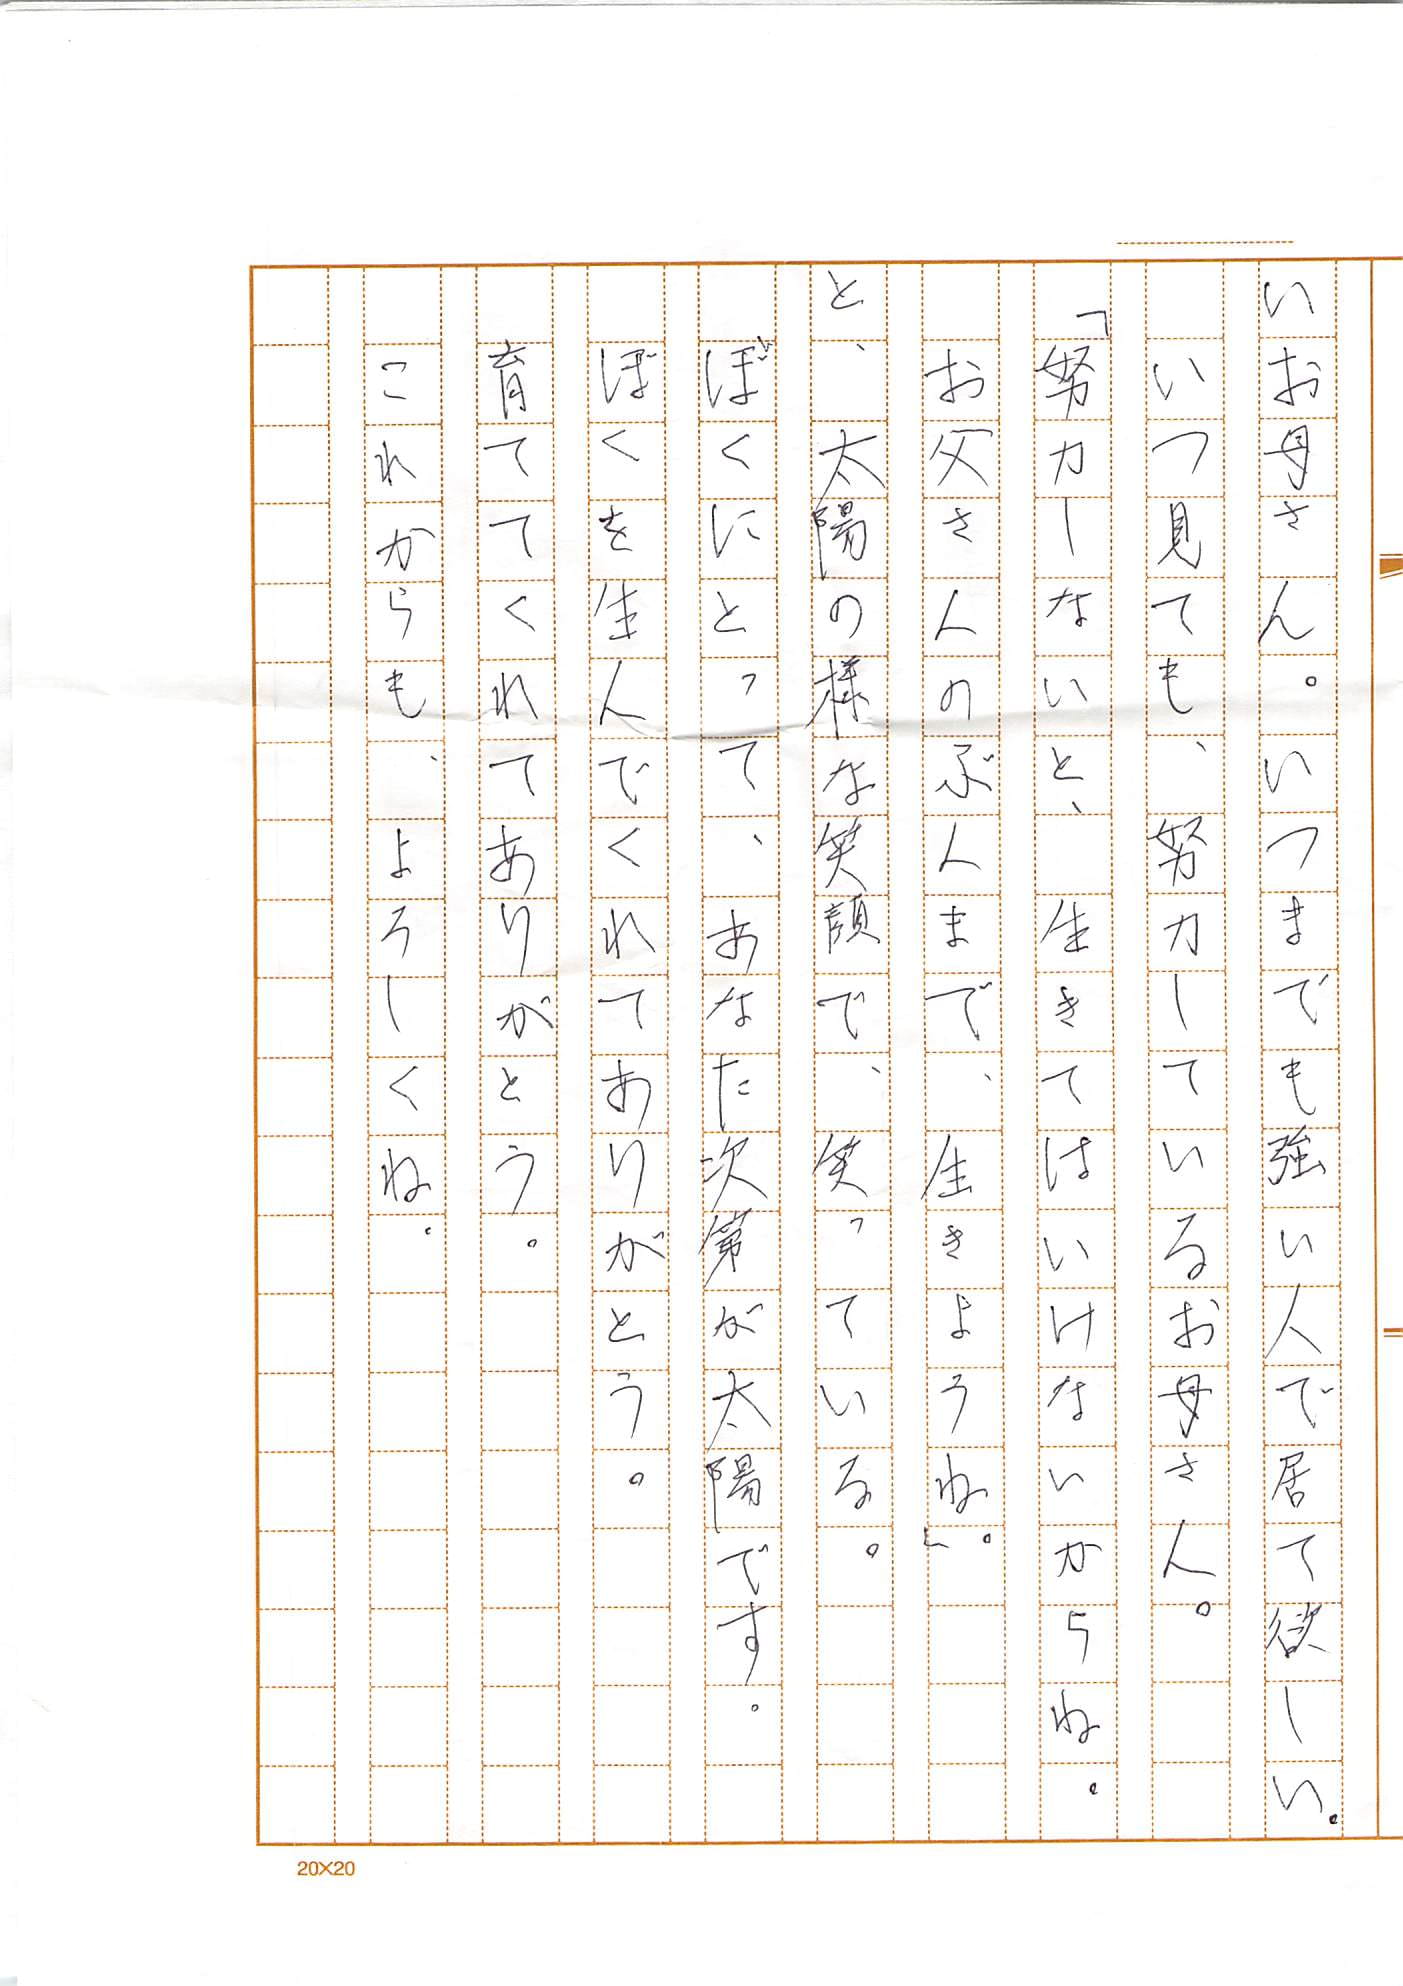 いお母さん。いつまでも強い人で居て欲しい。
いつ見ても、努力しているお母さん。
「努力しないと、生きてはいけないからね。
お父さんのぶんまで、生きようね。」
と、太陽の様な笑顔で、笑っている。
ぼくにとって、あなた次第が太陽です。
ぼくを生んでくれてありがとう。
育ててくれてありがとう。
これからも、よろしくね。
20×20